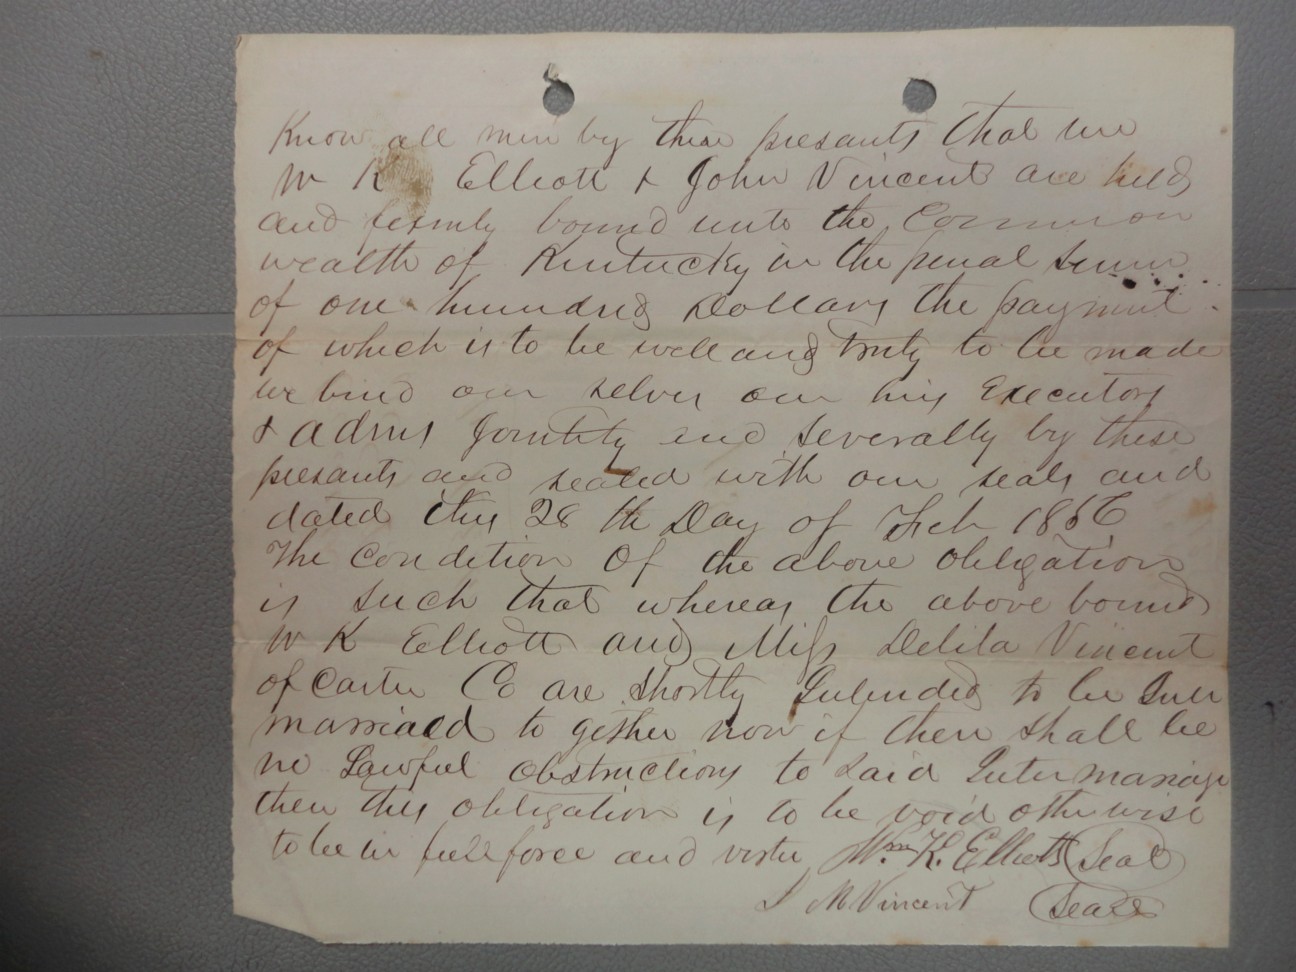 Know all men by these presants that we
W K Elliott & John Vincent are held
and fermly bound unto the Common
wealth of Kentucky in the penal sum
of one hundred Dollars the payment
of which is to be well and truly to be made
we bind our selves our hirs Executors
& adms Jointity and severally by these
presants and sealed with our seals and
dated this 28 th Day of Feb 1866
The condition Of the above obligation
is such that whereas the above bound
W K Elliott and Miss Delila Vincent
of Carter Co are shortly Intended to be Inter
marriaed to gether now if there shall be
no Lawful obstructions to said Inter marriage
then this obligation is to be void otherwise
to be in full force and vertu Wm K. Elliott Seal
J M Vincent Seal